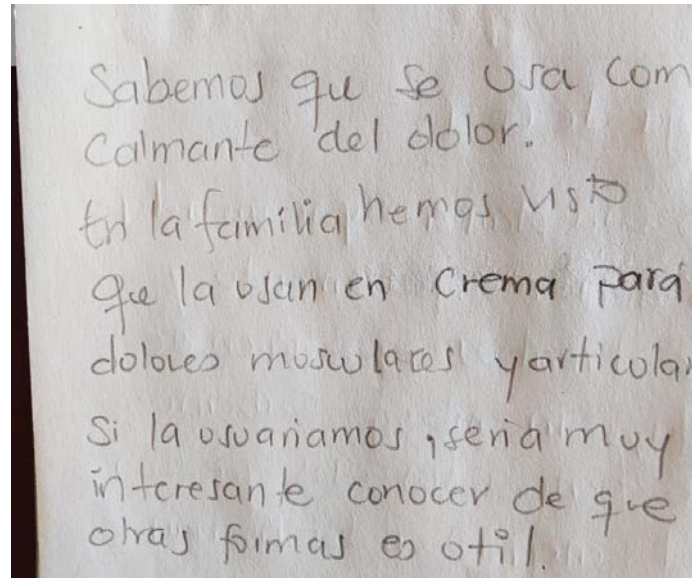 Sabemos qu se usa com
Calmante del dolor.
En la familia hemos visto
que la usan en crema para
dolores musculares y articular
Si la usuariamos, seria muy
interesante conocer de que
otras formas es util.